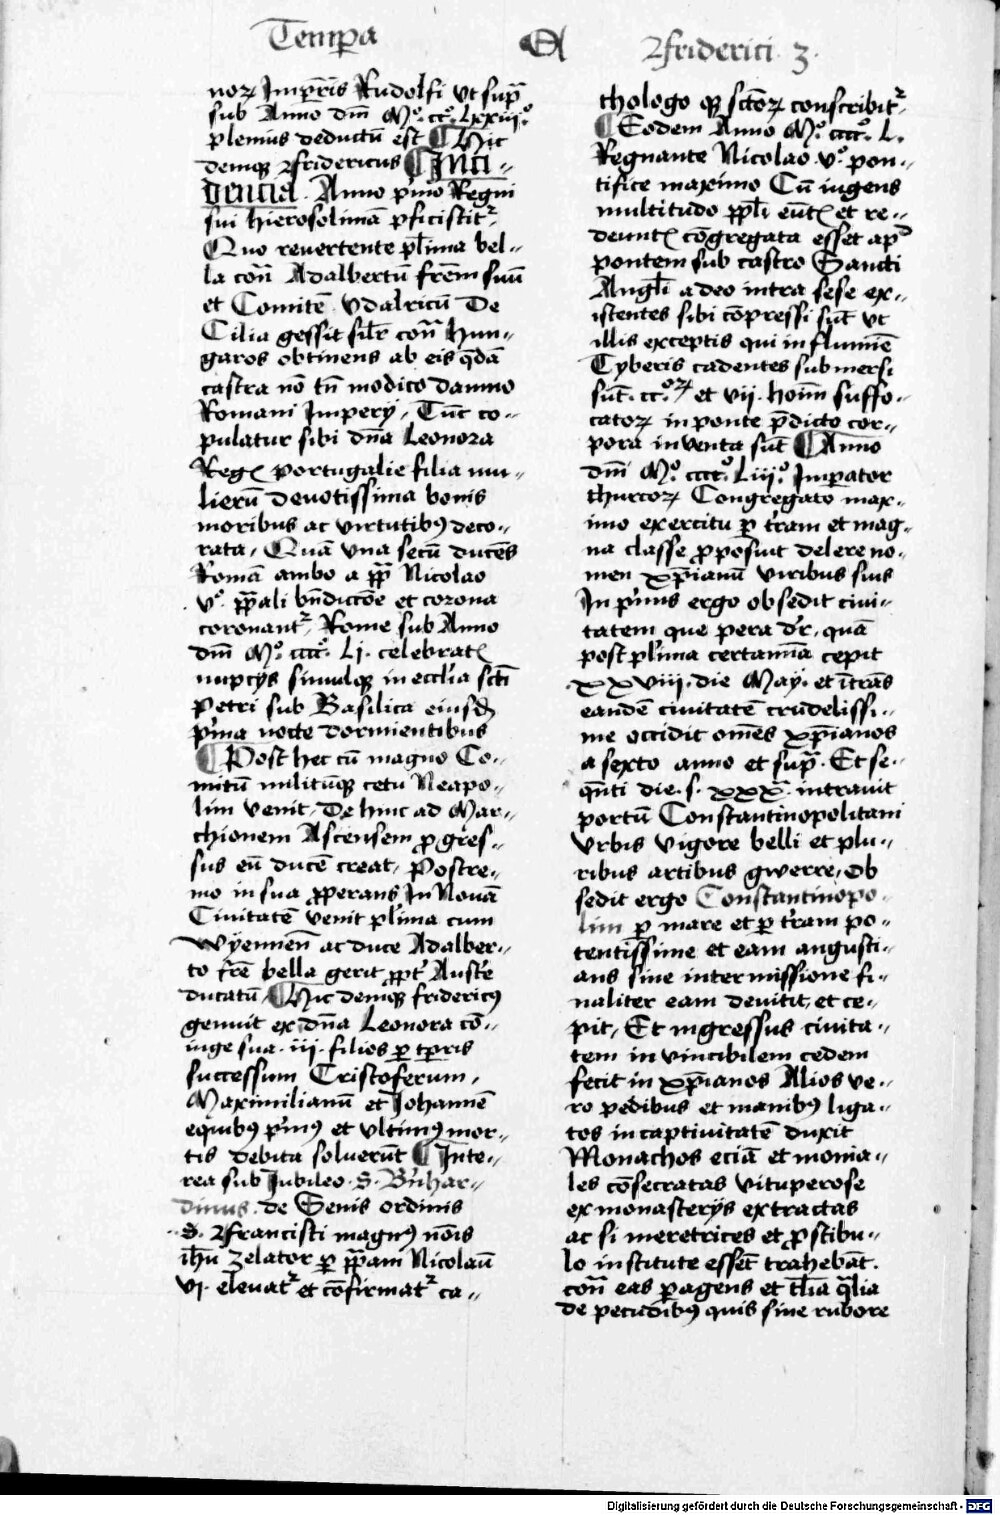 Temp̄a
Friderici 3.
noꝝ Imp̄ris Rudolfi vt sup̄
sub Anno dm̄ Mº. ccº. lxxiijº.
plenius deductū est ¶ Hic
demqꝫ Fridericus ¶ Inci-
dencia. Anno p̄mo Regni
sui hierosolimā p̄ficiscit᷑
Quo reuertente pl̄ima bel-
la con̄ Adalbertū frēm suū
et Comitē Vdalricū De
Cilia gessit sil̄r con̄ hun-
garos obtinens ab eis q̄dā
castra nō tn̄ modico damno
Romani Imperij, Tūc co-
pulatur sibi dn̄a Leonora
Reḡ portugalie filia mu-
lierū deuotissima bonis
moribus ac virtutibꝰ deco-
rata, Quā vna secū ducēs
Romā ambo a pp̄ Nicolao
vº. pp̄ali bn̄dictōe et corona
coronant᷑, Rome sub Anno
dm̄ Mº. ccccº. Lj. celebratꝭ
nupcijs simulqꝫ in ecclīa sct̄i
Petri sub Basilica eiusdē
p̄ma nocte dormientibus
¶ Post hec cū magno Co-
mitū militūqꝫ cetu Neapo-
lim venit, De hinc ad Mar-
chionem Ascensem ꝓgres-
sus eū ducē creat, Postre-
mo in sua ꝓperans In Nouā
Ciuitatē venit pl̄ima cum
Wÿennen̄ ac duce Adalber-
to frē bella gerit ꝓpt̄ Aust̄e
ducatū, ¶ Hic demqꝫ fridericꝰ
genuit ex dn̄a Leonora cō-
iuge sua. iij. filios ꝑ tp̄ris
successum Cristoferum,
Maximilianū et Johannē
equibꝰ p̄mꝰ et vltimꝰ mor-
tis debita soluerūt ¶ Inte-
rea sub Jubileo. S. B̄nhar-
dinus. de Senis ordinis
s. Francisci magnꝰ nōis
ih̄u zelator ꝑ pp̄am Nicolaū
vj. eleuat᷑ et cōfirmat᷑ ca-
thologo qꝫ sctōꝝ conscribit᷑.
¶ Eodem Anno Mº. ccccº. L.
Regnante Nicolao. vº. pon-
tifice maximo Cū ingens
multitudo pp̄li eūtꝭ et re-
deuntꝭ cōgregata esset apᵈ
pontem sub castro Sancti
Angl̄i adeo intra sese ex-
istentes sibi cōpressi sūt vt
illis exceptis qui in flumiē
Tyberis cadentes submersi
sūt. cc.ºꝝ et vij. hoīm suffo-
catoꝝ in ponte p̄dicto cor-
pora inventa sūt ¶ Anno
dm̄ Mº. ccccº. Liijº. Imperator
thurcoꝝ Congregato max-
imo exercitu ꝑ t̄ram et mag-
na classe ꝓposuit delere no-
men xp̄ianū viribus suis
In p̄mis ergo obsedit ciui-
tatem que pera dr̄, quā
post pl̄ima certamīa cepit
.xxviij. die Maÿ. et ītrās
eandē ciuitatē crudelissi-
me occidit om̄es xp̄ianos
a sexto anno et sup̄. Et se-
qn̄ti die. s. xxx. intrauit
portū Constantinopolitani
Vrbis vigore belli et plu-
ribus artibus gwerre, Ob
sedit ergo Constantinopo-
lim ꝑ mare et ꝑ t̄ram po-
tentissime et eam angusti-
ans sine intermissione fi-
naliter eam deuicit, et ce-
pit, Et ingressus ciuita-
tem in vincibilem cedem
fecit in xp̄ianos Alios ve-
ro pedibus et manibꝰ liga-
tos in captiuitatē duxit
Monachos eciā et monia-
les cōsecratas vituperose
ex monasterijs extractas
ac si meretrices et ꝓstibu-
lo institute essēt trahebāt.
con̄ eas peragens et tl̄ia q̄lia
de pecudibꝰ quis sine rubore
Digitalisierung gefördert durch die Deutsche Forschungsgemeinschaft - DFG